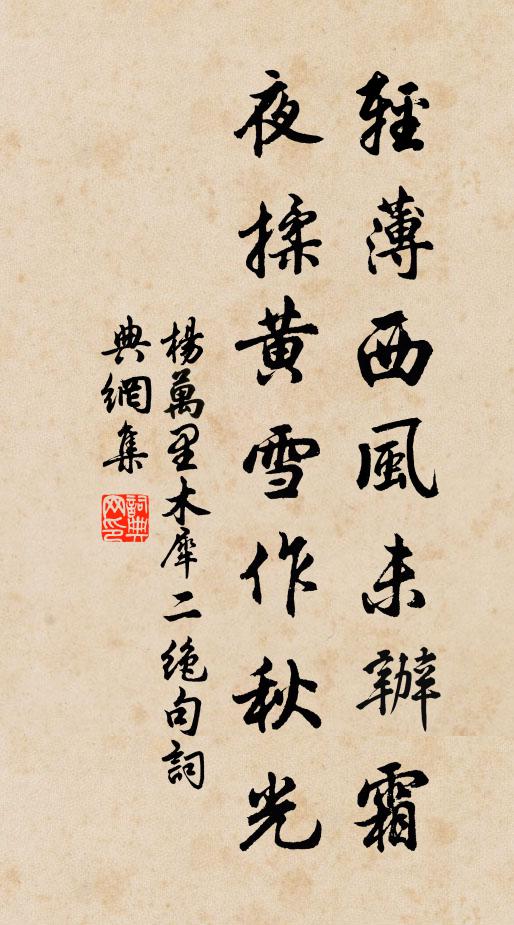 輕薄西風未辦霜
夜揉黃雪作秋光
楊萬里木犀二絶句詞
典網集
詞典網印